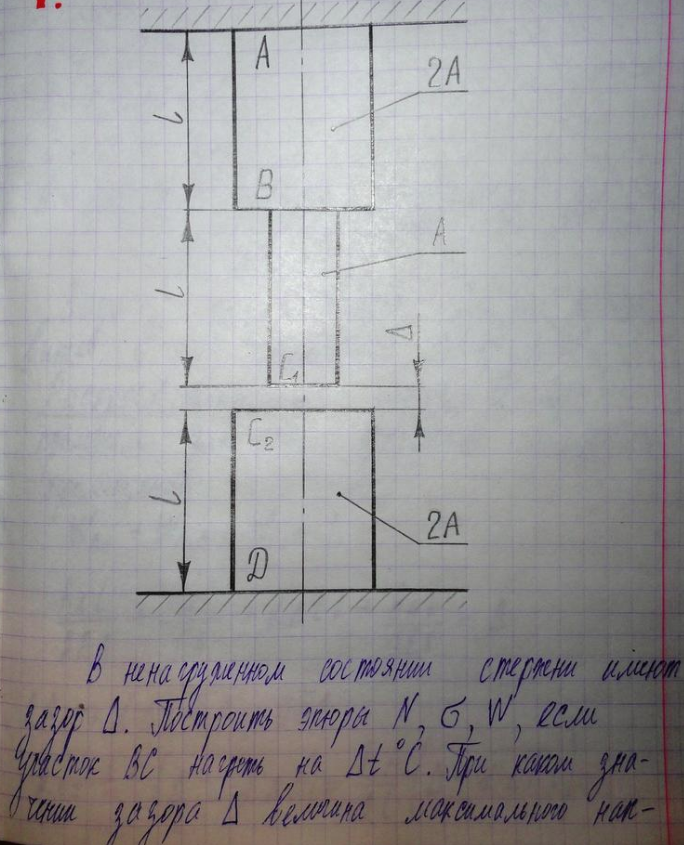 1.
A
2A
l
B
A
l
Δ
C₁
C₂
l
2A
D
В ненагруженном состоянии стержни имеют
зазор Δ. Построить эпюры N, σ, W, если
участок BC нагреть на Δt°C. При каком зна-
чении зазора Δ величина максимального нап-